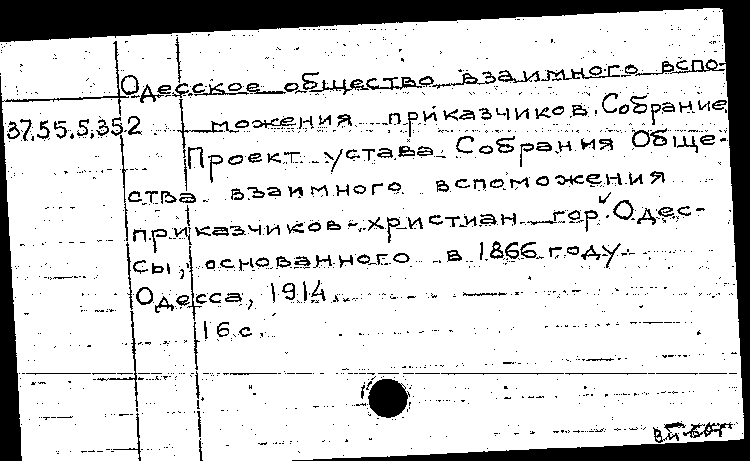 Одесское общество взаимного вспо-
37.55.5.352 можения приказчиков. Собрание
Проект устава Собрания Обще-
ства взаимного вспоможения
приказчиков-христиан гор. Одес-
сы, основанного в 1866 году.
Одесса, 1914.
16 с.